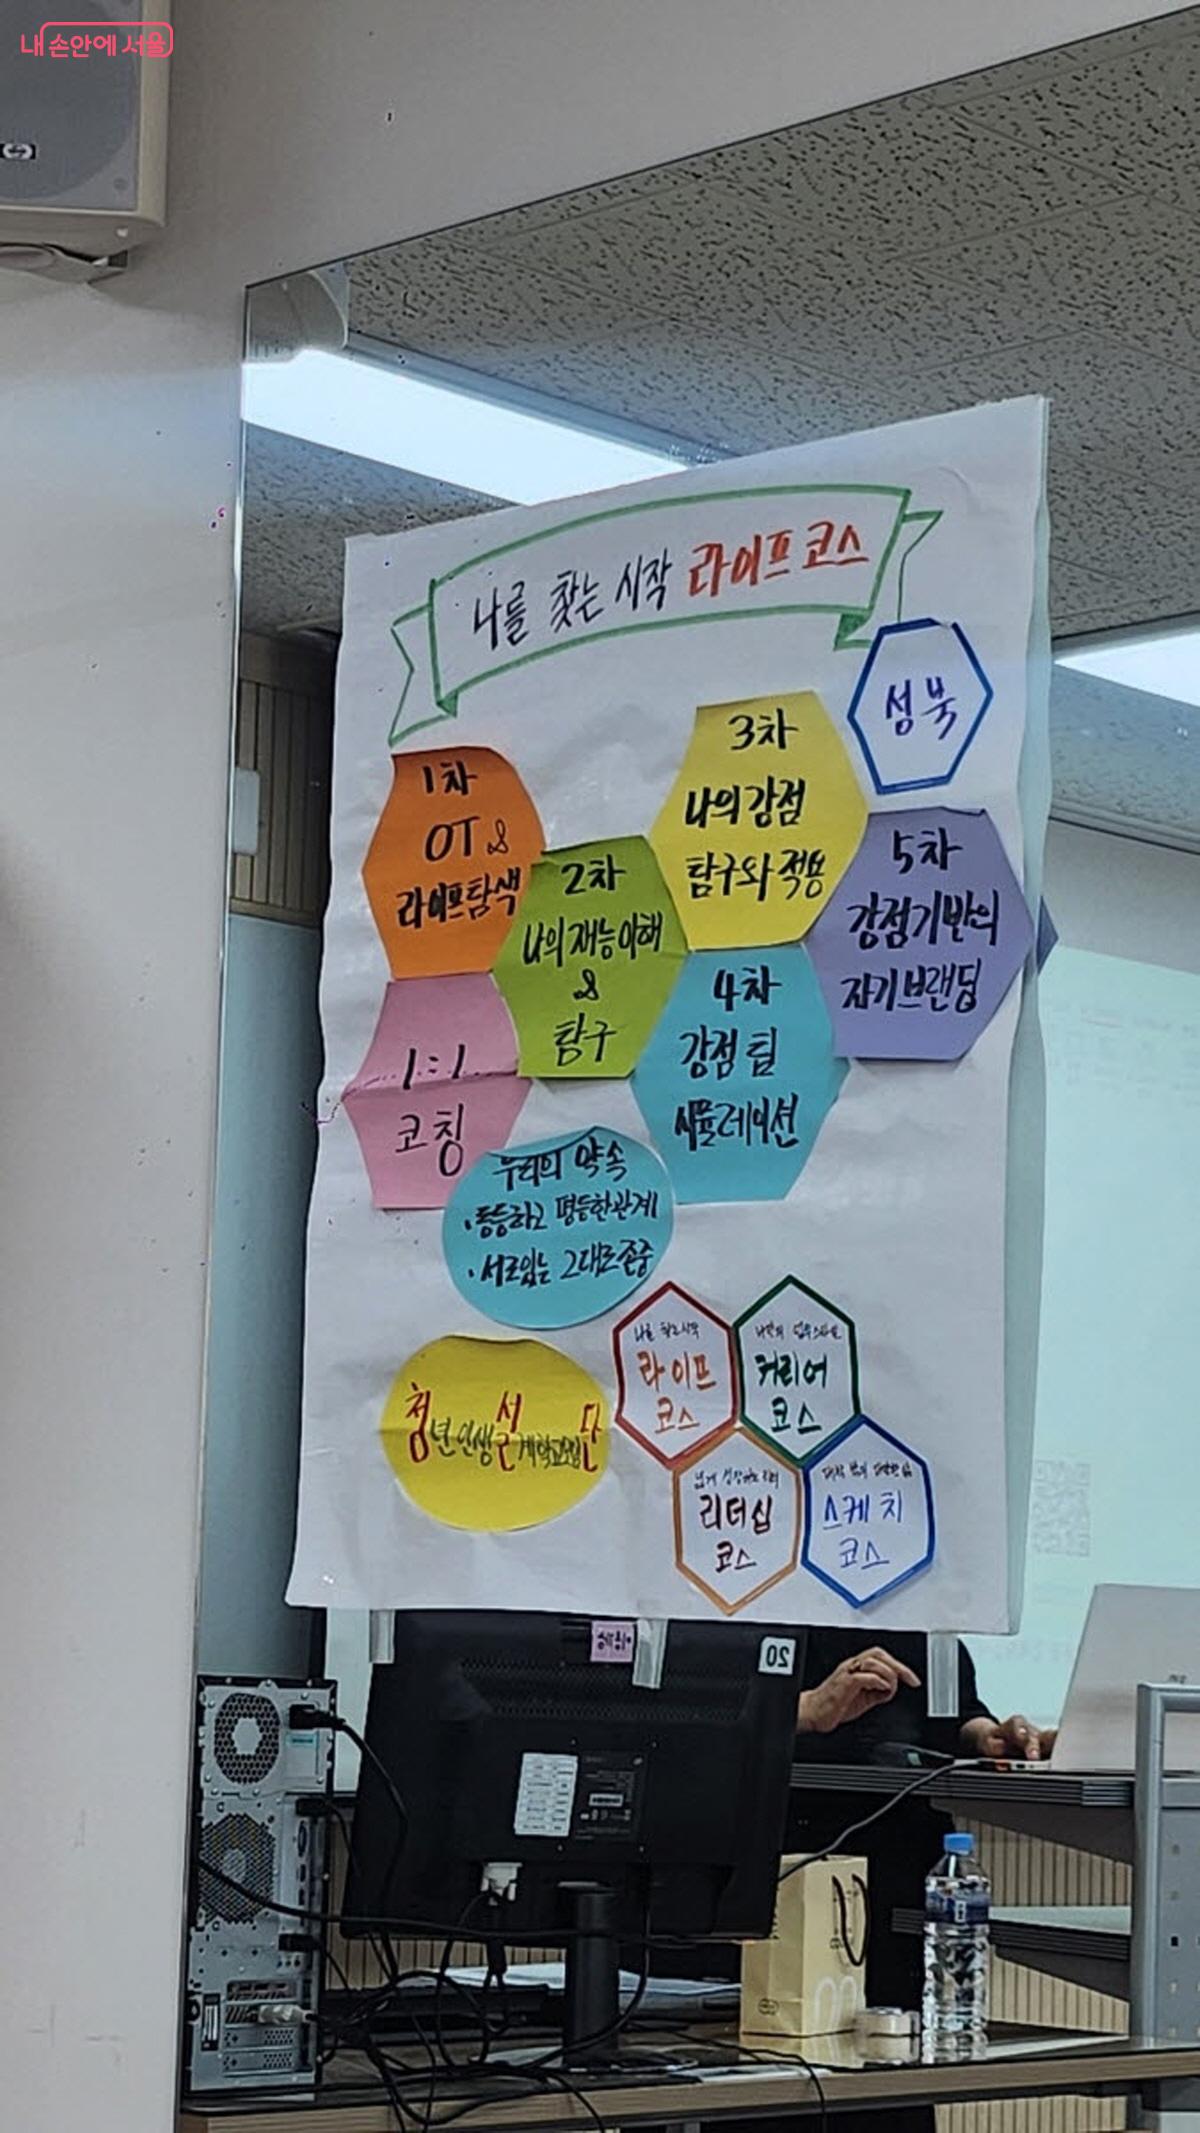 내 손안에 서울
나를 찾는 시작 라이프코스
성북
1차
OT &
라이프탐색
2차
나의 재능이해
&
탐구
3차
나의 강점
탐구와 적용
4차
강점 팀
시뮬레이션
5차
강점기반의
자기브랜딩
1:1
코칭
우리의 약속
· 동등하고 평등한 관계
· 서로있는 그대로존중
청년인생설계학교모임단
나를 찾는시작
라이프
코스
커리어
코스
리더십
코스
스케치
코스
20